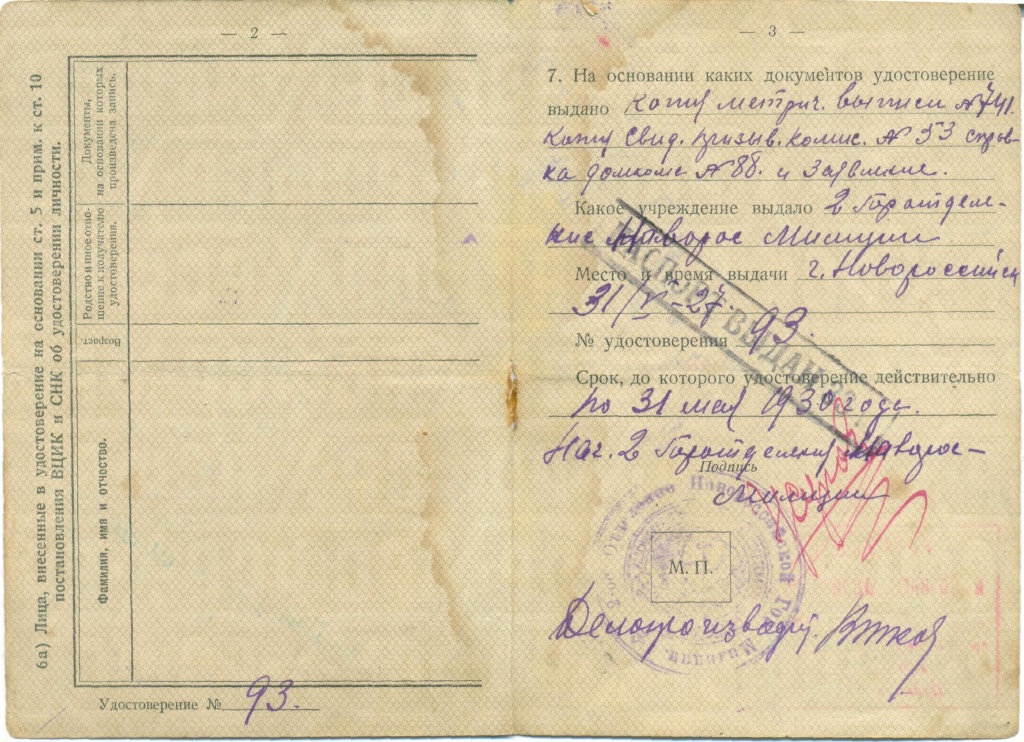 — 2 —
6а) Лица, внесенные в удостоверение на основании ст. 5 и прим. к ст. 10
постановления ВЦИК и СНК об удостоверении личности.
Фамилия, имя и отчество.
Возраст
Родство и иное отно-
шение к получателю
удостоверения.
Документы,
на основании которых
произведена запись.
Удостоверение № 93.
— 3 —
7. На основании каких документов удостоверение
выдано Копия метрич. выписи № 741.
копия Свид. призыв. комис. № 53 справ-
ка домкома № 88. и Заявление.
Какое учреждение выдало 2 Горотделе-
ние Новорос Милиции
Место и время выдачи г. Новороссийск
31/V-27
№ удостоверения 93.
Срок, до которого удостоверение действительно
по 31 мая 1930 года.
Нач. 2 Горотделения Новорос-
Подпись
Милиции
М. П.
Делопроизводит.
ПАСПОРТ ВЫДАН
Отделение Новороссийской Гор. Милиции